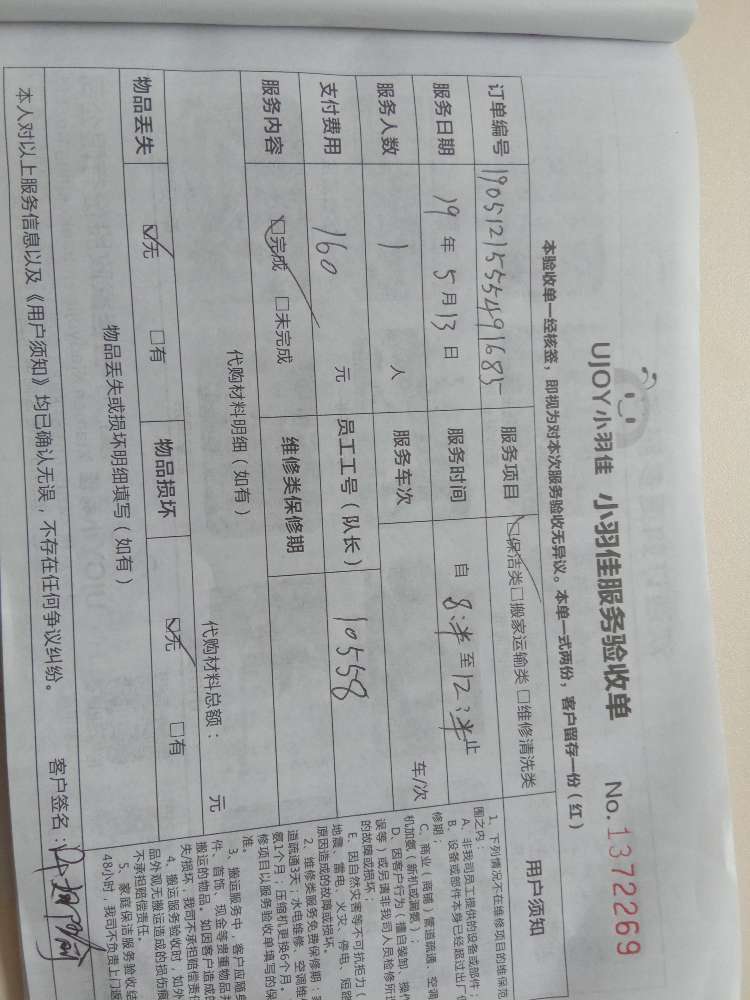 UJOY小羽佳 小羽佳服务验收单 No.1372269
本验收单一经核签，即视为对本次服务验收无异议。本单一式两份，客户留存一份（红）
订单编号 190512155549 1685 服务项目 ☑保洁类□搬家运输类□维修清洗类
服务日期 19年5月13日 服务时间 自8:半至12:半止
服务人数 1 人 服务车次 车/次
支付费用 160 元 员工工号（队长） 10558
服务内容 ☑完成 □未完成 维修类保修期
代购材料明细（如有）
代购材料总额： 元
物品丢失 ☑无 □有 物品损坏 ☑无 □有
物品丢失或损坏明细填写（如有）
本人对以上服务信息以及《用户须知》均已确认无误，不存在任何争议纠纷。 客户签名：
用户须知
1、下列情况不在维修项目的维保范
围之内：
A、非我司员工提供的设备或部件；
B、设备或部件本身已经超过出厂
修期；
C、商业（商铺）管道疏通、空调
机加氨（新机或漏氨）；
D、因客户行为（擅自装卸、操作
误等）或另请非我司人员检修所
的故障或损坏；
E、因自然灾害等不可抗拒力（
地震、雷电、火灾、停电、短路
原因造成的故障或损坏。
2、维修类服务免费保修期：
道疏通3天；水电维修、空调维
氨1个月；压缩机更换6个月。
修项目以服务验收单填写的保
准。
3、搬运服务中，客户应随身
件、首饰、现金等贵重物品
搬运的物品，如因客户造成的
失/损坏，我司不承担赔偿责任
4、搬运服务验收时，如外
品外观无搬运造成的损伤痕
不承担赔偿责任。
5、家庭保洁服务验收
48小时，我司不负责上门返